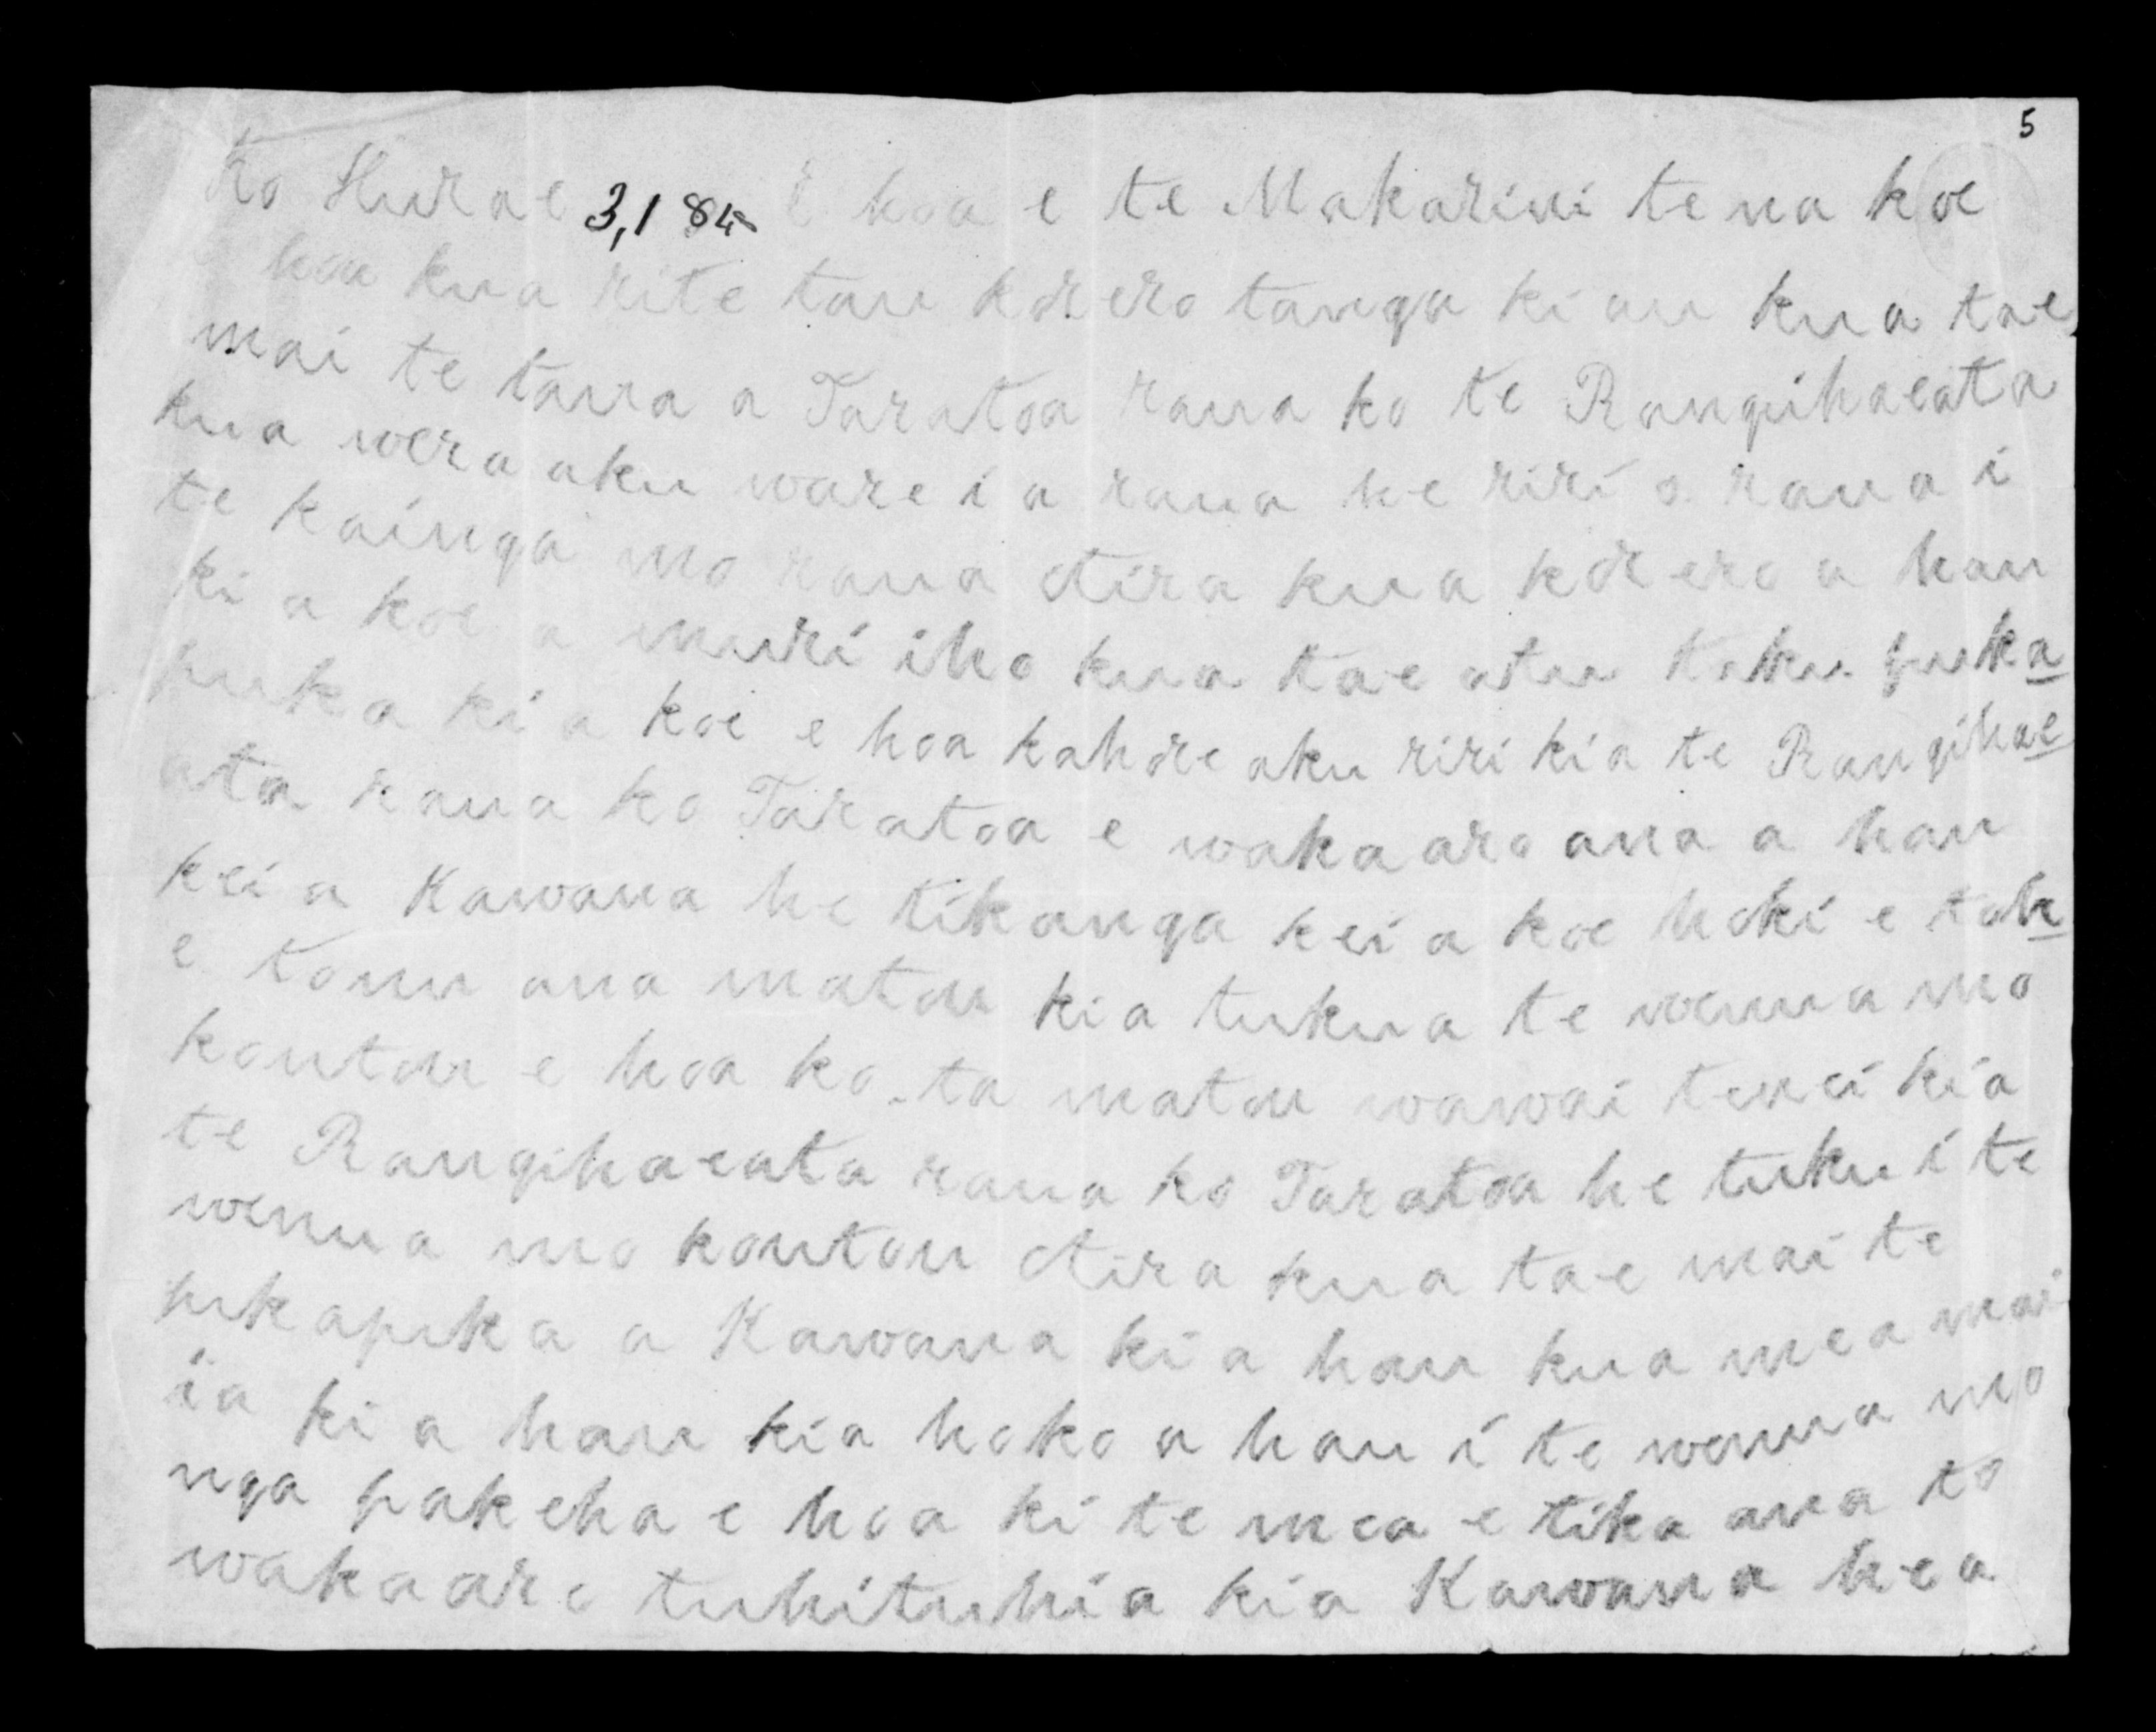 5
Ko Hurae 3,184 E hoa e te Makarini tena koe
hoa kua rite tau korero tanga ki au kua tae
mai te taua a Taratoa raua ko te Rangihaeata
kua wera aku ware i a raua he riri o raua i
te kainga mo raua otira kua korero a hau
ki a koe a muri iho kua tae atu taku puka
puka ki a koe e hoa kahore aku riri kia te Rangihae
ata raua ko Taratoa e wakaaro ana a hau
kei a Kawana he tikanga kei a koe hoki e toh
e tonu ana matou kia tukua te wenua mo
koutou e hoa ko ta matou wawai tenei kia
te Rangihaeata raua ko Taratoa he tuku i te
wenua mo koutou otira kua tae mai te
pukapuka a Kawana ki a hau kua mea mai
ia ki a hau kia hoko a hau i te wenua mo
nga pakeha e hoa ki te mea e tika ana to
wakaaro tuhituhia kia Kawana hea